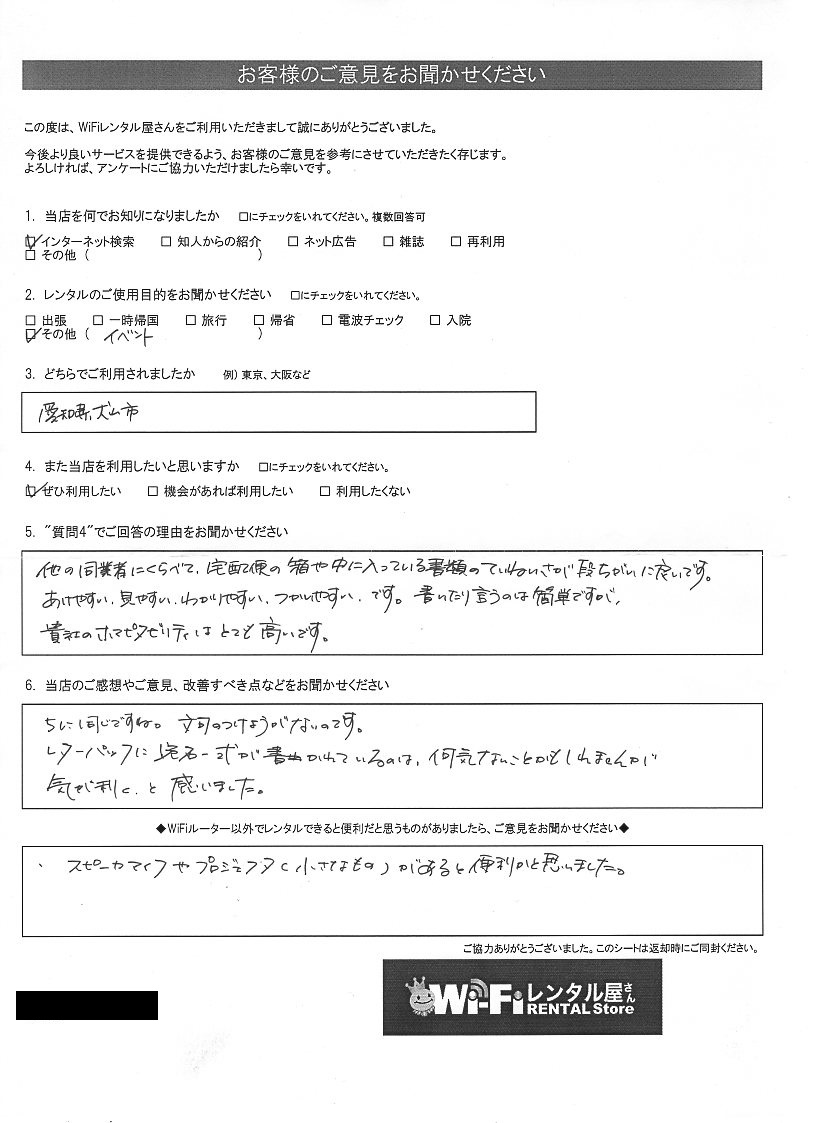 お客様のご意見をお聞かせください
この度は、WiFiレンタル屋さんをご利用いただきまして誠にありがとうございました。
今後より良いサービスを提供できるよう、お客様のご意見を参考にさせていただきたく存じます。
よろしければ、アンケートにご協力いただけましたら幸いです。
1. 当店を何でお知りになりましたか □にチェックをいれてください。複数回答可
☑インターネット検索 □ 知人からの紹介 □ ネット広告 □ 雑誌 □ 再利用
□ その他 ( )
2. レンタルのご使用目的をお聞かせください □にチェックをいれてください。
□ 出張 □ 一時帰国 □ 旅行 □ 帰省 □ 電波チェック □ 入院
☑その他 ( イベント )
3. どちらでご利用されましたか 例) 東京、大阪など
愛知県犬山市
4. また当店を利用したいと思いますか □にチェックをいれてください。
☑ぜひ利用したい □ 機会があれば利用したい □ 利用したくない
5. "質問4"でご回答の理由をお聞かせください
他の同業者にくらべて、宅配便の箱や中に入っている書類のていねいさが段ちがいに良いです。
あけやすい、見やすい、わかりやすい、つかいやすい、です。書いたり言うのは簡単ですが、
貴社のホスピタビリティはとても高いです。
6. 当店のご感想やご意見、改善すべき点などをお聞かせください
5に同じですね。文句のつけようがないのです。
レターパックに宛名一式が書かれているのは、何気ないことかもしれませんが
気が利く、と感じました。
◆WiFiルーター以外でレンタルできると便利だと思うものがありましたら、ご意見をお聞かせください◆
、スピーカマイクやプロジェクタ(小さなもの)があると便利かと思いました。
ご協力ありがとうございました。このシートは返却時にご同封ください。
Wi-Fiレンタル屋さん
RENTAL Store